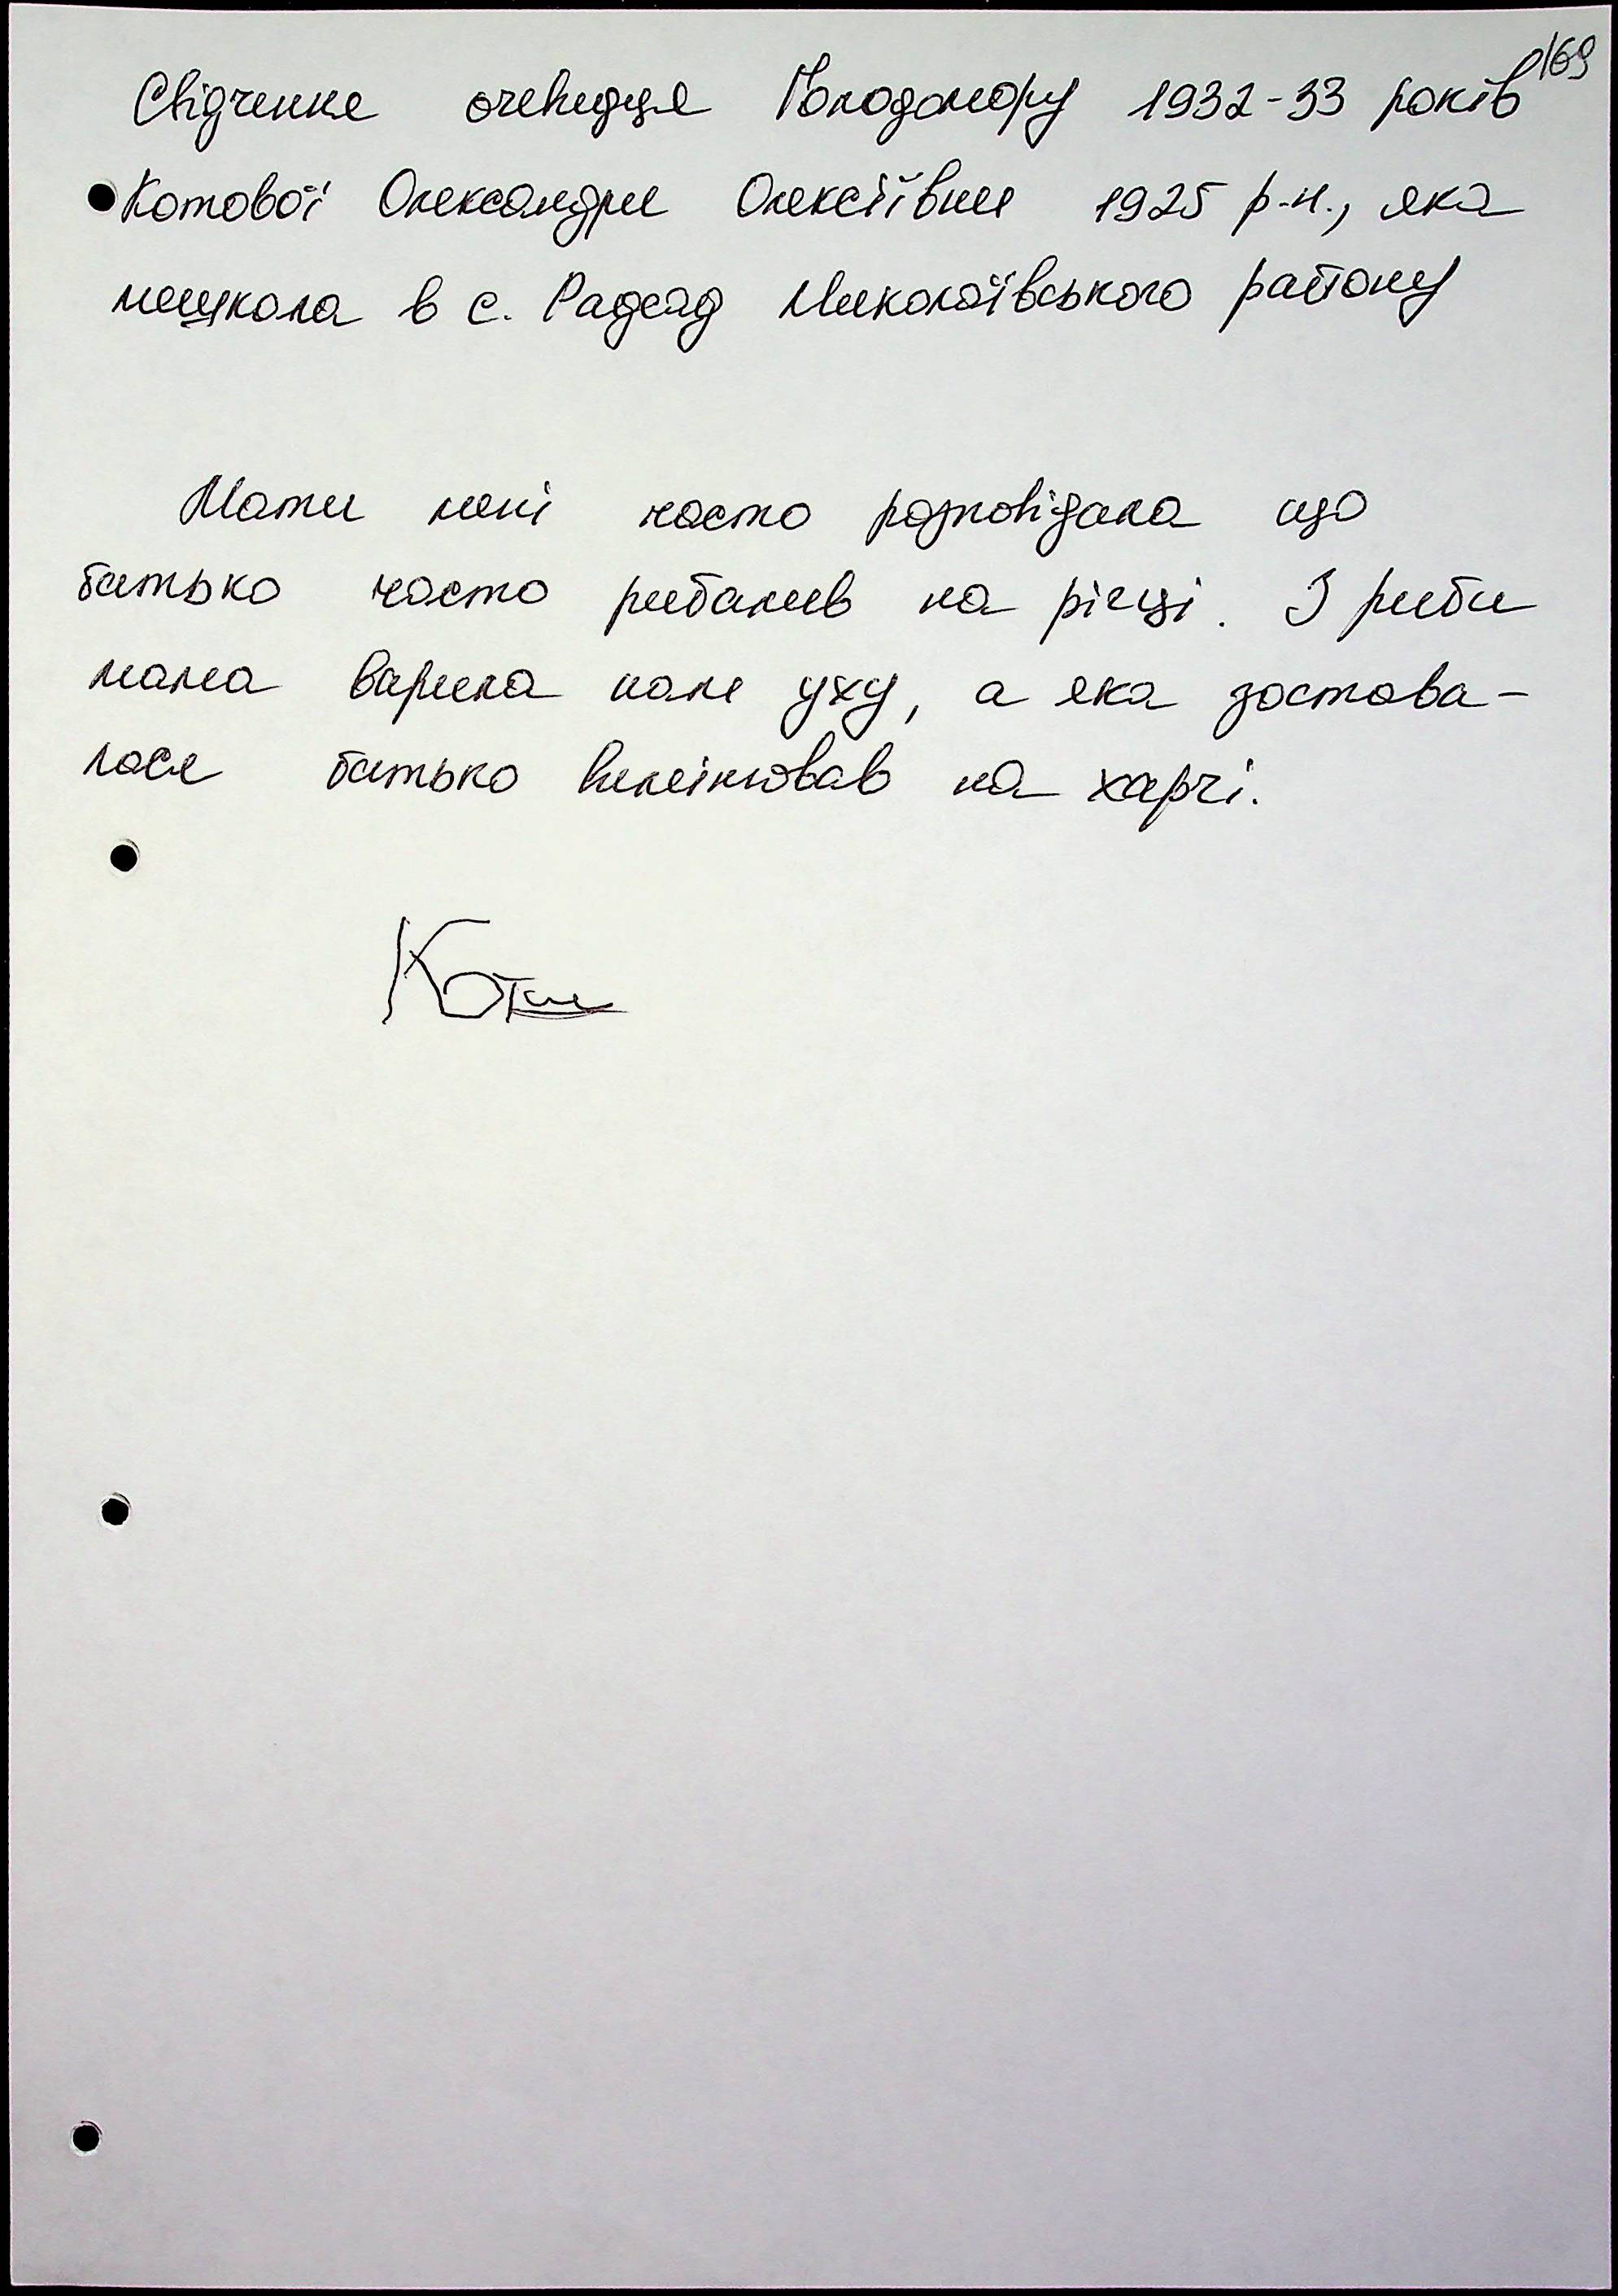 169
Свідчення очевидця Голодомору 1932-33 років
Котової Олександри Олексіївни 1925 р.н., яка
мешкала в с. Радсад Миколаївського району
Мати мені часто розповідала що
батько часто рибалив на річці. З риби
мама варила нам уху, а яка зостава-
лася батько вимінював на харчі.